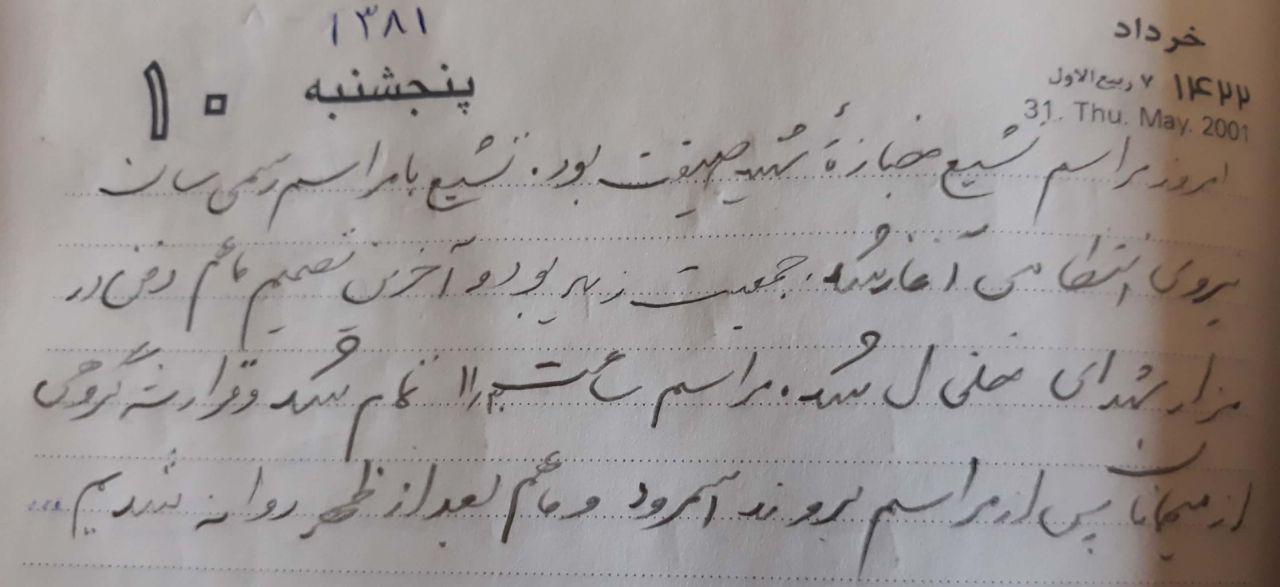 ۱۳۸۱
خرداد
پنجشنبه
۱۰
۱۴۲۲ ۷ ربیع‌الاول
31. Thu. May. 2001
امروز مراسم تشیع جنازهٔ شهید بود. تشیع با مراسم رسمی سان
نیروی انتظامی آغاز شد. جمعیت زیاد بود و آخرین تصمیم هم دفن در
مزار شهدای خلخال شد. مراسم ساعت ۱۱٫۳۰ تمام شد و قرار شد گروهی
از میهمانان پس از مراسم بروند و ما هم بعد از ظهر روانه شدیم ...